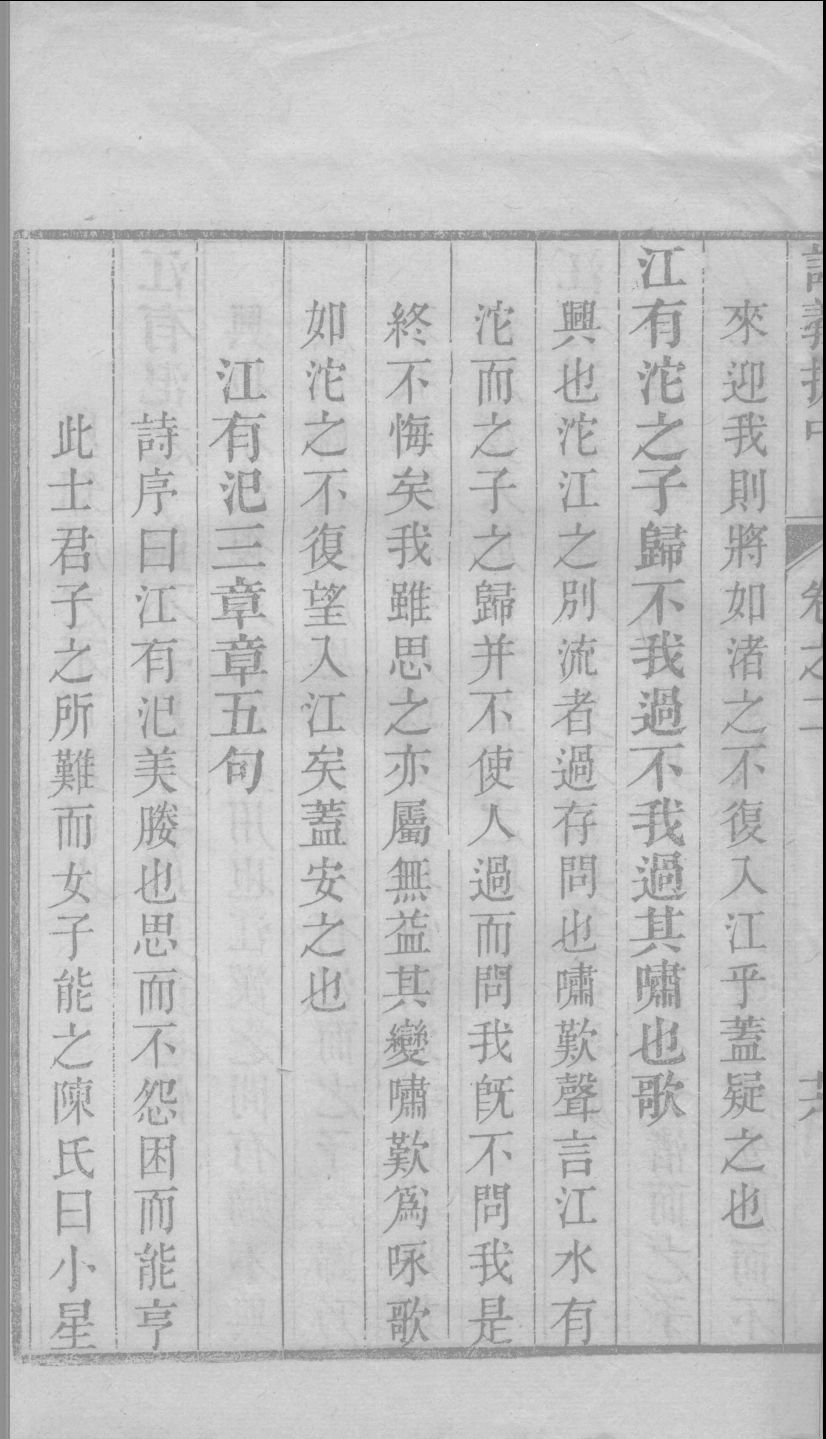 來迎我則將如渚之不復入江乎蓋疑之也
江有沱之子歸不我過不我過其嘯也歌
興也沱江之別流者過存問也嘯歎聲言江水有
沱而之子之歸并不使人過而問我旣不問我是
終不悔矣我雖思之亦屬無益其變嘯歎爲咏歌
如沱之不復望入江矣蓋安之也
江有汜三章章五句
詩序曰江有汜美媵也思而不怨困而能亨
此士君子之所難而女子能之陳氏曰小星